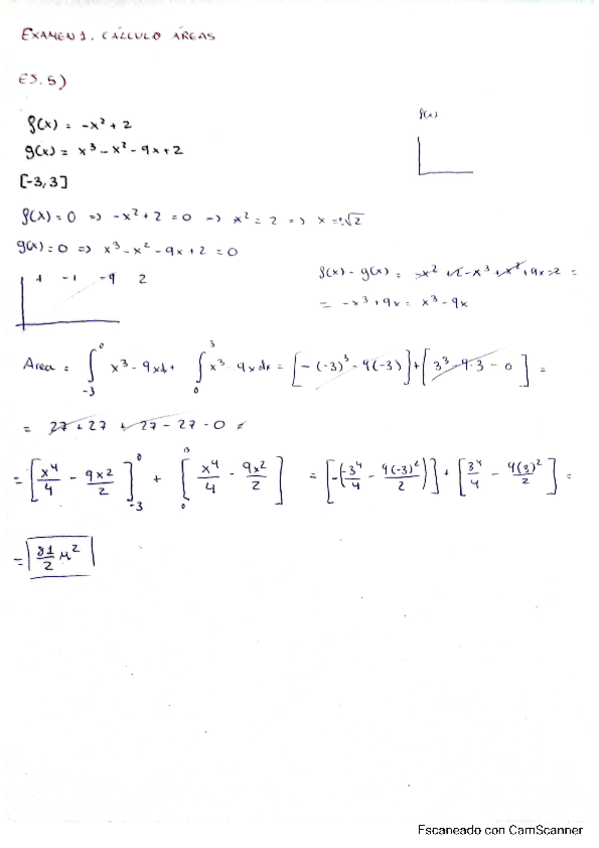 EXAMEN 1. CÁLCULO ÁREAS
EJ. 5)
f(x)
f(x) = -x² + 2
g(x) = x³ - x² - 9x + 2
[-3, 3]
f(x) = 0 => -x² + 2 = 0 => x² = 2 => x = ±√2
g(x) = 0 => x³ - x² - 9x + 2 = 0
1 -1 -9 2
f(x) - g(x) = -x² + 2 - x³ + x² + 9x - 2 =
= -x³ + 9x = x³ - 9x
Area = ∫₋₃⁰ x³ - 9x dx + ∫₀³ x³ - 9x dx = [-(-3)³ - 9(-3)] + [3³ - 9·3 - 0] =
= 27 + 27 + 27 - 27 - 0 =
= [x⁴/4 - 9x²/2]₋₃⁰ + [x⁴/4 - 9x²/2]₀³ = [-(-3⁴/4 - 9(-3)²/2)] + [3⁴/4 - 9(3)²/2] =
= 81/2 u²
Escaneado con CamScanner